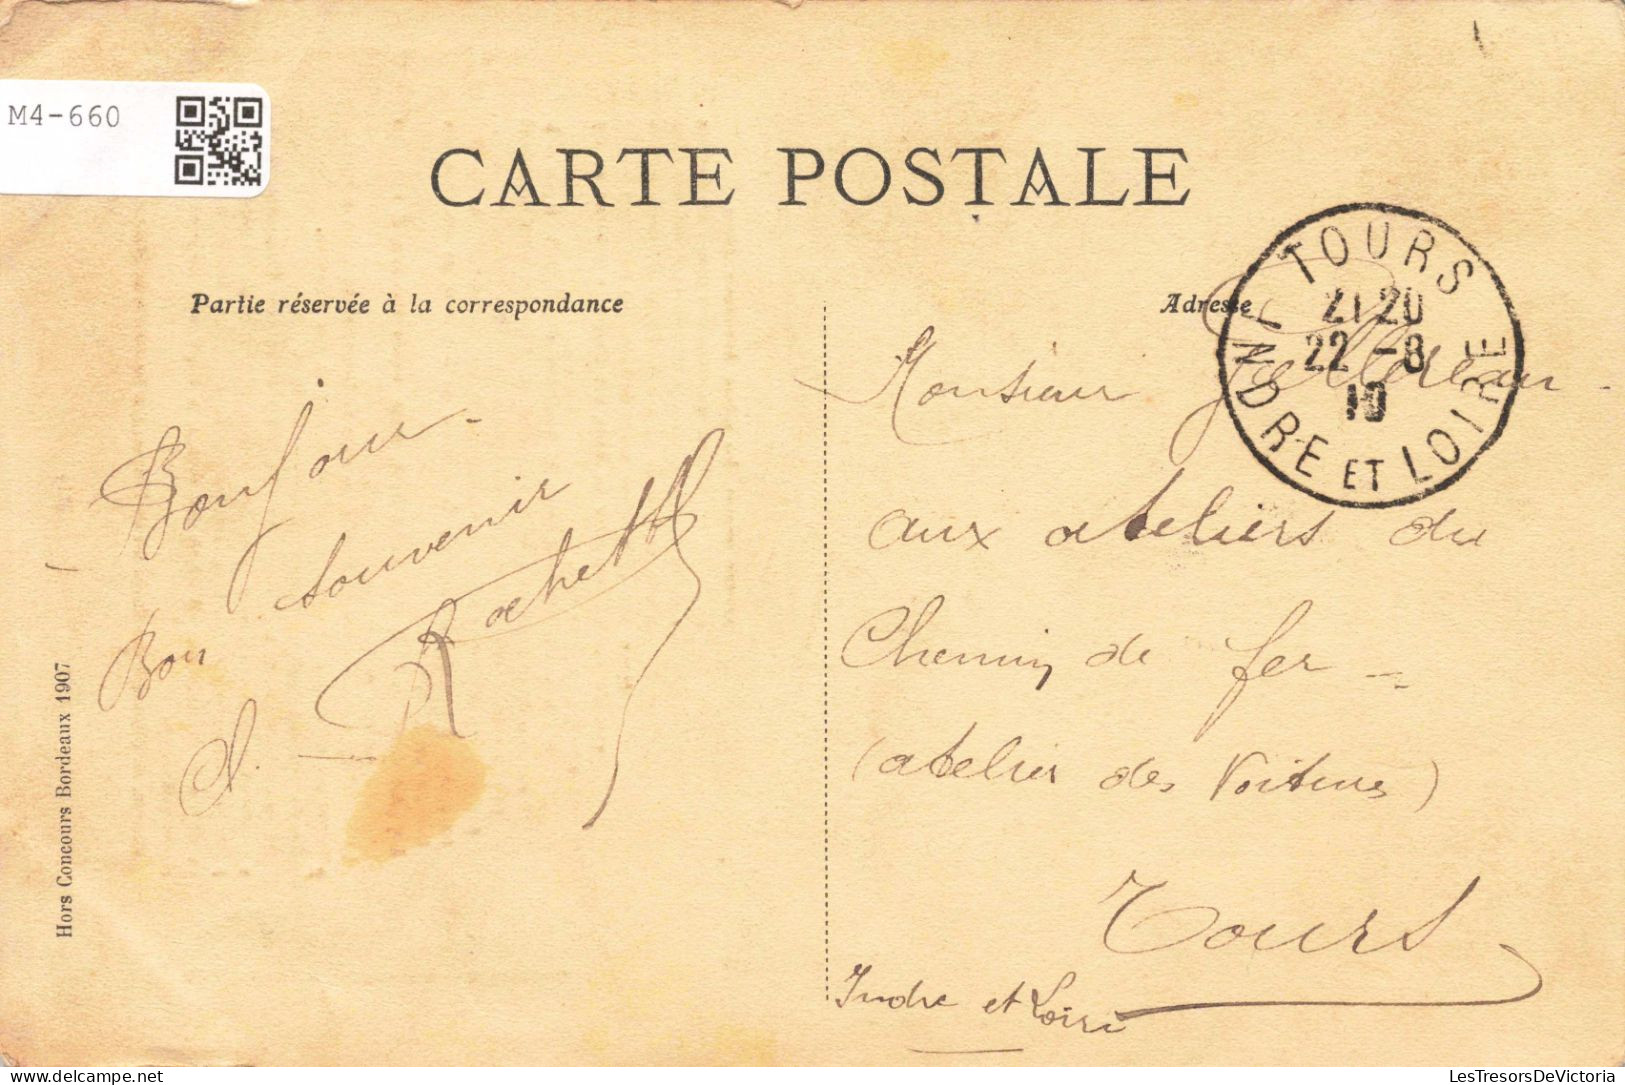 M4-660
CARTE POSTALE
Partie réservée à la correspondance
Adresse
TOURS
21 20
22 -8
10
INDRE ET LOIRE
Bonjour -
Bon souvenir
Rochet
Monsieur
aux ateliers du
Chemin de fer -
(atelier des Voitures)
Tours
Indre et Loire
Hors Concours Bordeaux 1907
LesTresorsDeVictoria